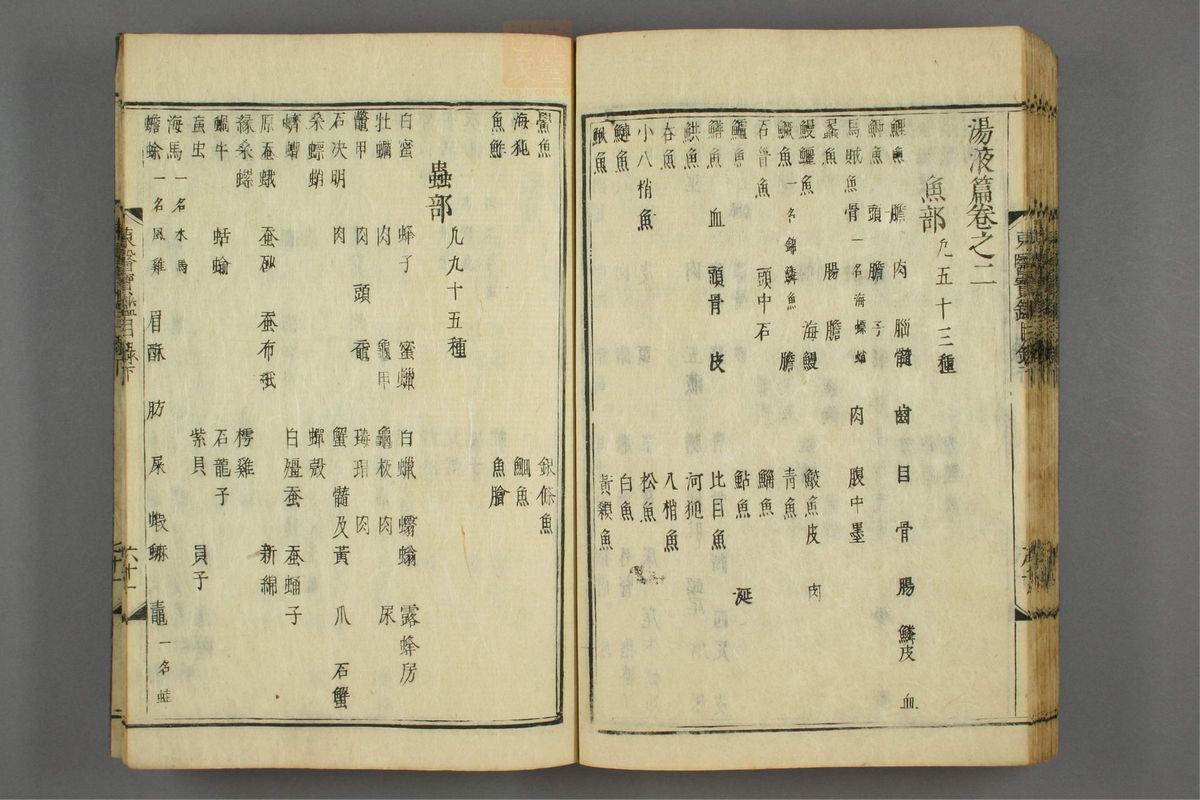 湯液篇卷之二
魚部 凡五十三種
鯉魚 膽 肉 腦髓 齒 目 骨 腸 鱗皮 血
鯽魚 頭 膽 子
烏賊魚骨 一名海螵蛸 肉 腹中墨
蠡魚 腸 膽
鰻鱺魚 海鰻 鮫魚皮 肉
鱖魚 一名錦鱗魚 膽 青魚
石首魚 頭中石 鯔魚
鱸魚 鮎魚 涎
鱔魚 血 頭骨 皮 比目魚
鯕魚 河㹠
杏魚 八梢魚
小八梢魚 松魚
鰱魚 白魚
鰍魚 黃顙魚
鱟魚 銀條魚
海㹠 鮰魚
魚鮓 魚膾
蟲部 凡九十五種
白蜜 蜂子 蜜蠟 白蠟 蠮螉 露蜂房
牡蠣 肉 龜甲 龜板 肉 尿
鱉甲 肉 頭 黿 瑇瑁 肉
石決明 肉 蟹 髓及黃 爪 石蟹
桑螵蛸 蟬殼
蠐螬 白殭蚕 蚕蛹子
原蚕蛾 蚕砂 蚕布紙 新綿
緣桑螺 樗雞
蝸牛 蛞蝓 石龍子
䖟虫 紫貝 貝子
海馬 一名水馬
蟾蜍 一名風雞 眉酥 肪 屎 蝦蟆 鼃 一名蛙
東醫寶鑑目錄下
六十一